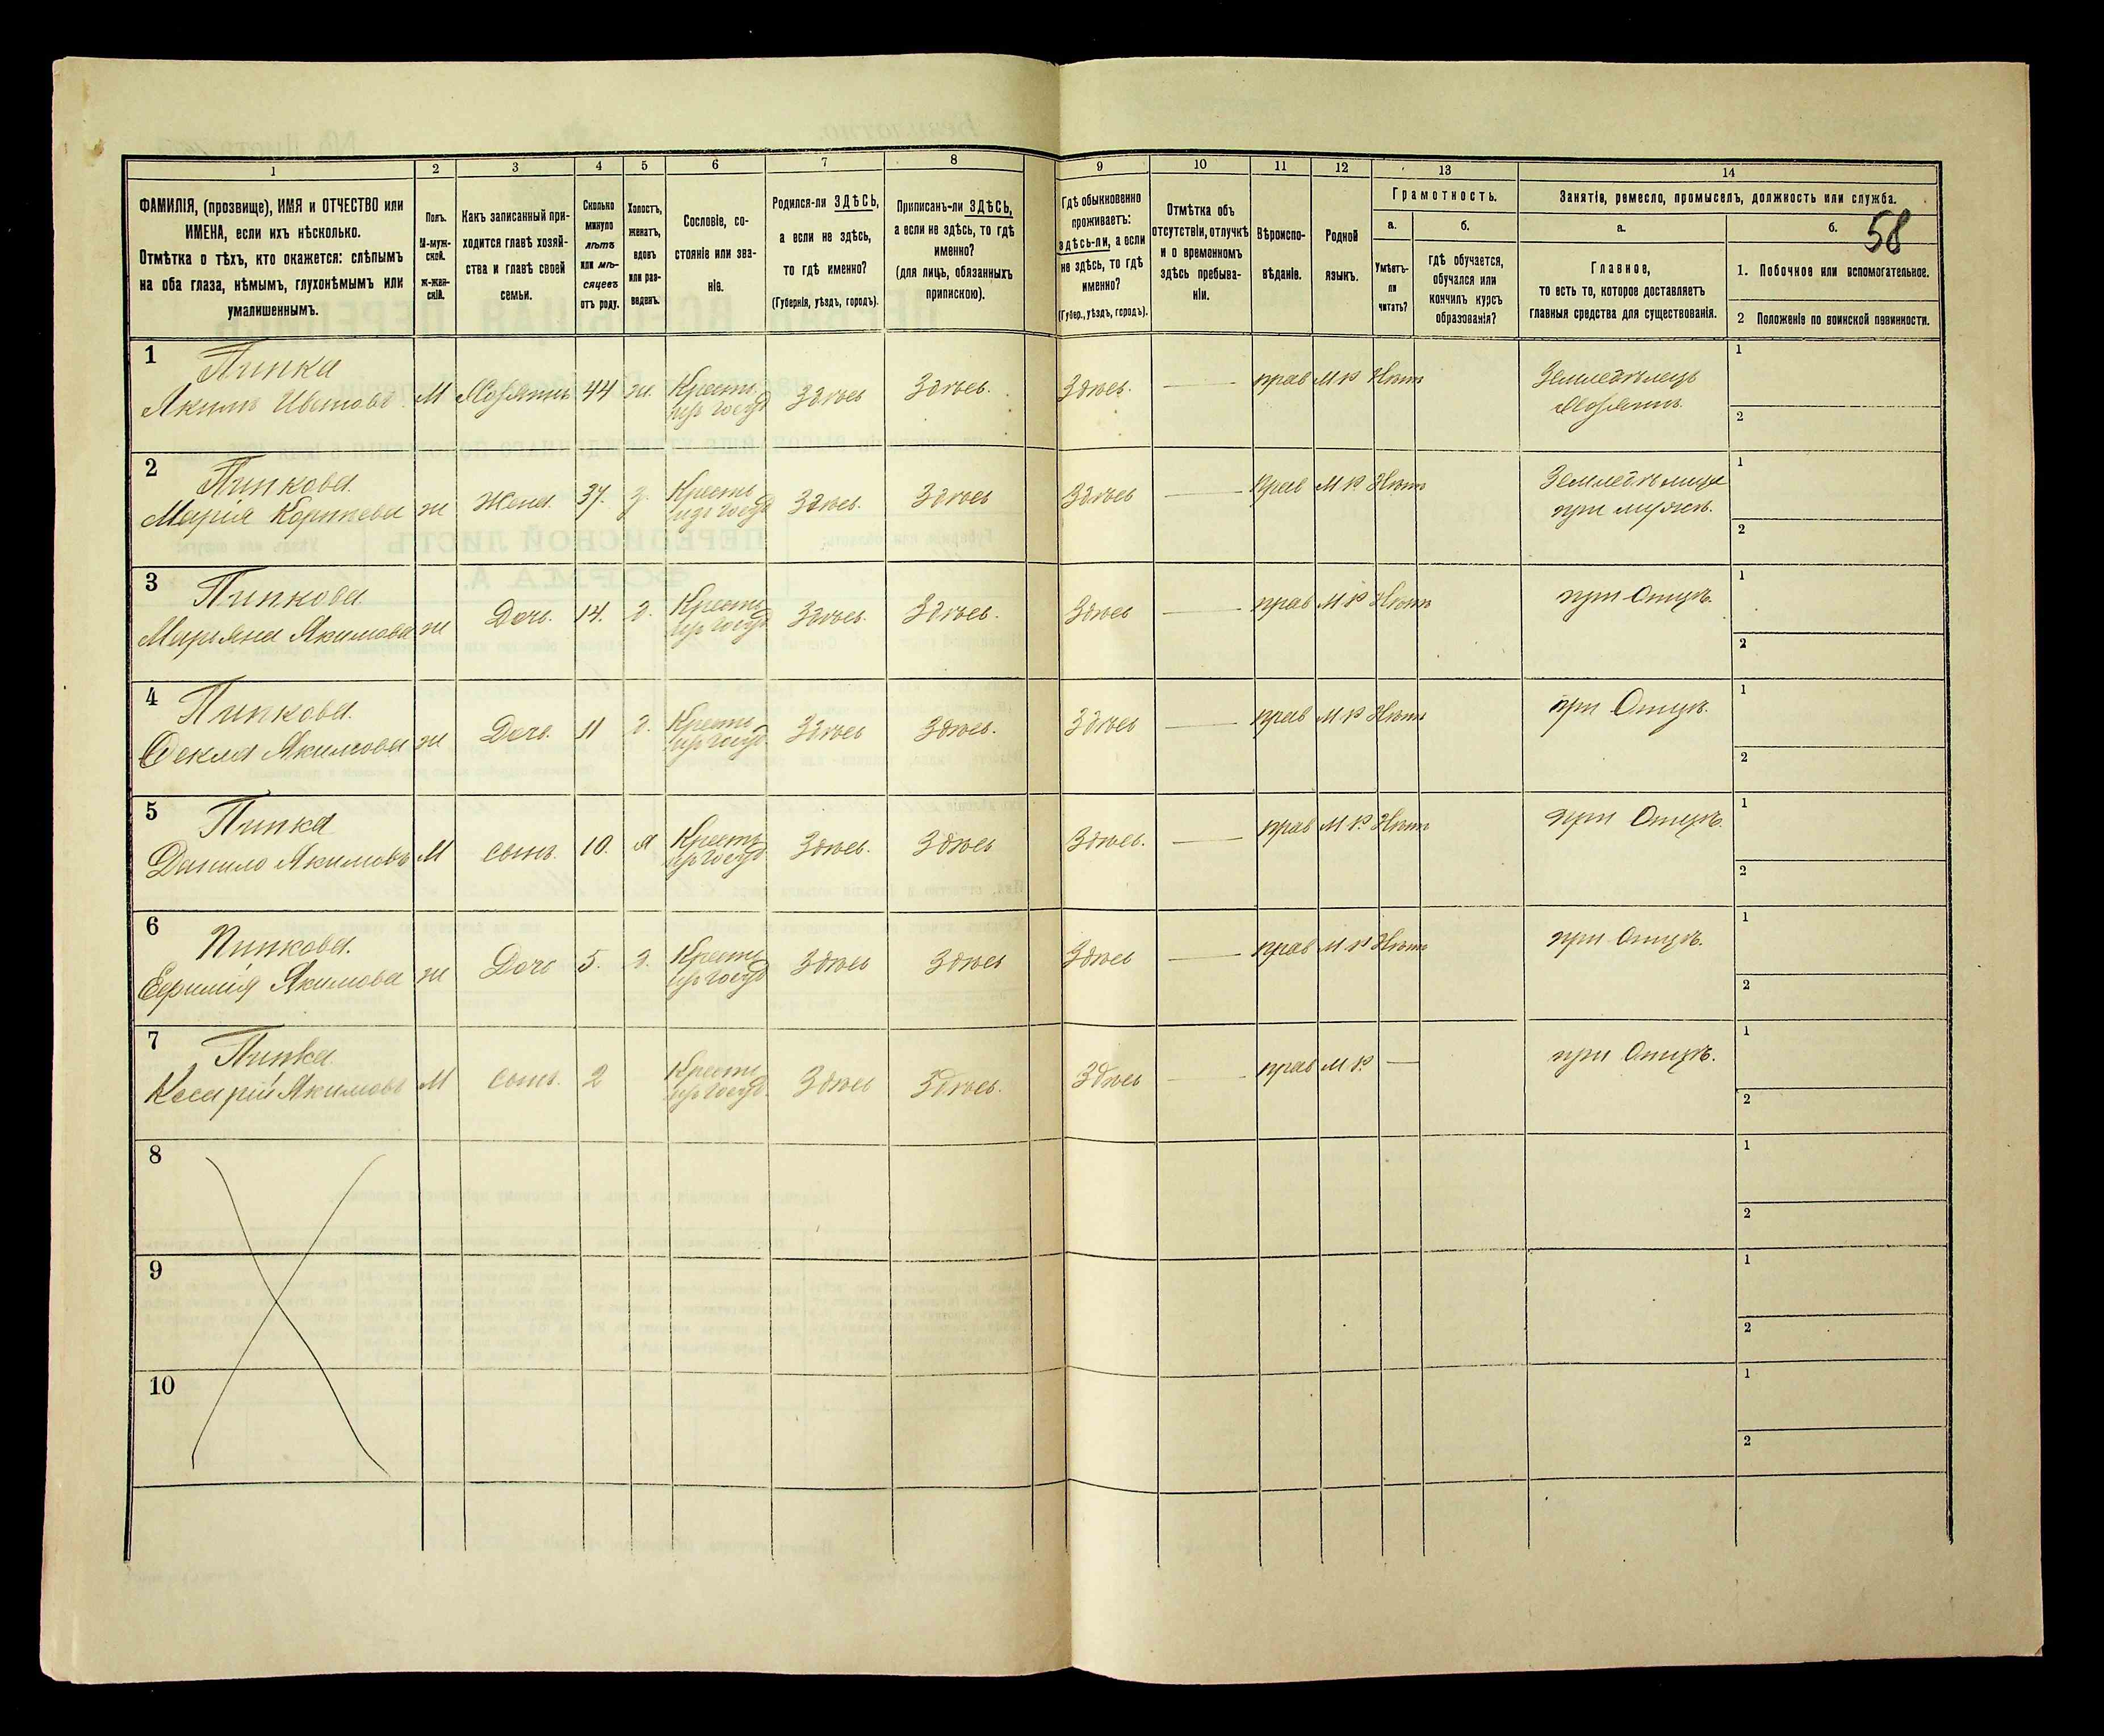 1 2 3 4 5 6 7 8 9 10 11 12 13 14
ФАМИЛІЯ, (прозвище), ИМЯ и ОТЧЕСТВО или
ИМЕНА, если ихъ нѣсколько.
Отмѣтка о тѣхъ, кто окажется: слѣпымъ
на оба глаза, нѣмымъ, глухонѣмымъ или
умалишеннымъ.
Полъ.
М-муж-
ской.
ж-жен-
скій.
Какъ записанный при-
ходится главѣ хозяй-
ства и главѣ своей
семьи.
Сколько
минуло
лѣтъ
или мѣ-
сяцевъ
отъ роду.
Холостъ,
женатъ,
вдовъ
или раз-
веденъ.
Сословіе, со-
стояніе или зва-
ніе.
Родился-ли ЗДѢСЬ,
а если не здѣсь,
то гдѣ именно?
(Губернія, уѣздъ, городъ).
Приписанъ-ли ЗДѢСЬ,
а если не здѣсь, то гдѣ
именно?
(для лицъ, обязанныхъ
припискою).
Гдѣ обыкновенно
проживаетъ:
здѣсь-ли, а если
не здѣсь, то гдѣ
именно?
(Губер., уѣздъ, городъ).
Отмѣтка объ
отсутствіи, отлучкѣ
и о временномъ
здѣсь пребыва-
ніи.
Вѣроиспо-
вѣданіе.
Родной
языкъ.
Грамотность.
а.
Умѣетъ-
ли
читать?
б.
гдѣ обучается,
обучался или
кончилъ курсъ
образованія?
Занятіе, ремесло, промыселъ, должность или служба.
58
а.
Главное,
то есть то, которое доставляетъ
главныя средства для существованія.
б.
1. Побочное или вспомогательное.
2 Положеніе по воинской повинности.
1 Пипка Крестъ Земледѣлецъ 1
Якимъ Ивановъ М Хозяинъ 44 ж. изъ госуд Здѣсь Здѣсь. Здѣсь. — прав М Р Нѣтъ Хозяинъ 2
2 Пипкова. Крестъ Земледѣлица 1
Марія Карпьева ж Жена. 37. З. изъ госуд Здѣсь. Здѣсь Здѣсь — прав М Р. Нѣтъ при мужѣ. 2
3 Пипкова. Крестъ 1
Марьяна Якимова ж Дочь. 14. д. изъ госуд Здѣсь. Здѣсь. Здѣсь — прав М Р Нѣтъ при Отцѣ. 2
4 Пипкова. Крестъ 1
Фекла Якимова ж Дочь. 11 д. изъ госуд. Здѣсь Здѣсь. Здѣсь — прав М Р Нѣтъ при Отцѣ. 2
5 Пипка Крестъ 1
Данило Якимовъ М сынъ. 10. х изъ госуд Здѣсь. Здѣсь Здѣсь. — прав М Р. Нѣтъ при Отцѣ. 2
6 Пипкова. Крестъ 1
Ефимія Якимова ж Дочь 5. д. изъ госуд Здѣсь Здѣсь Здѣсь — прав М Р Нѣтъ при Отцѣ. 2
7 Пипка Крестъ 1
Кесарій Якимовъ М сынъ. 2 изъ госуд. Здѣсь Здѣсь. Здѣсь — прав М Р. — при Отцѣ. 2
8 1
2
9 1
2
10 1
2